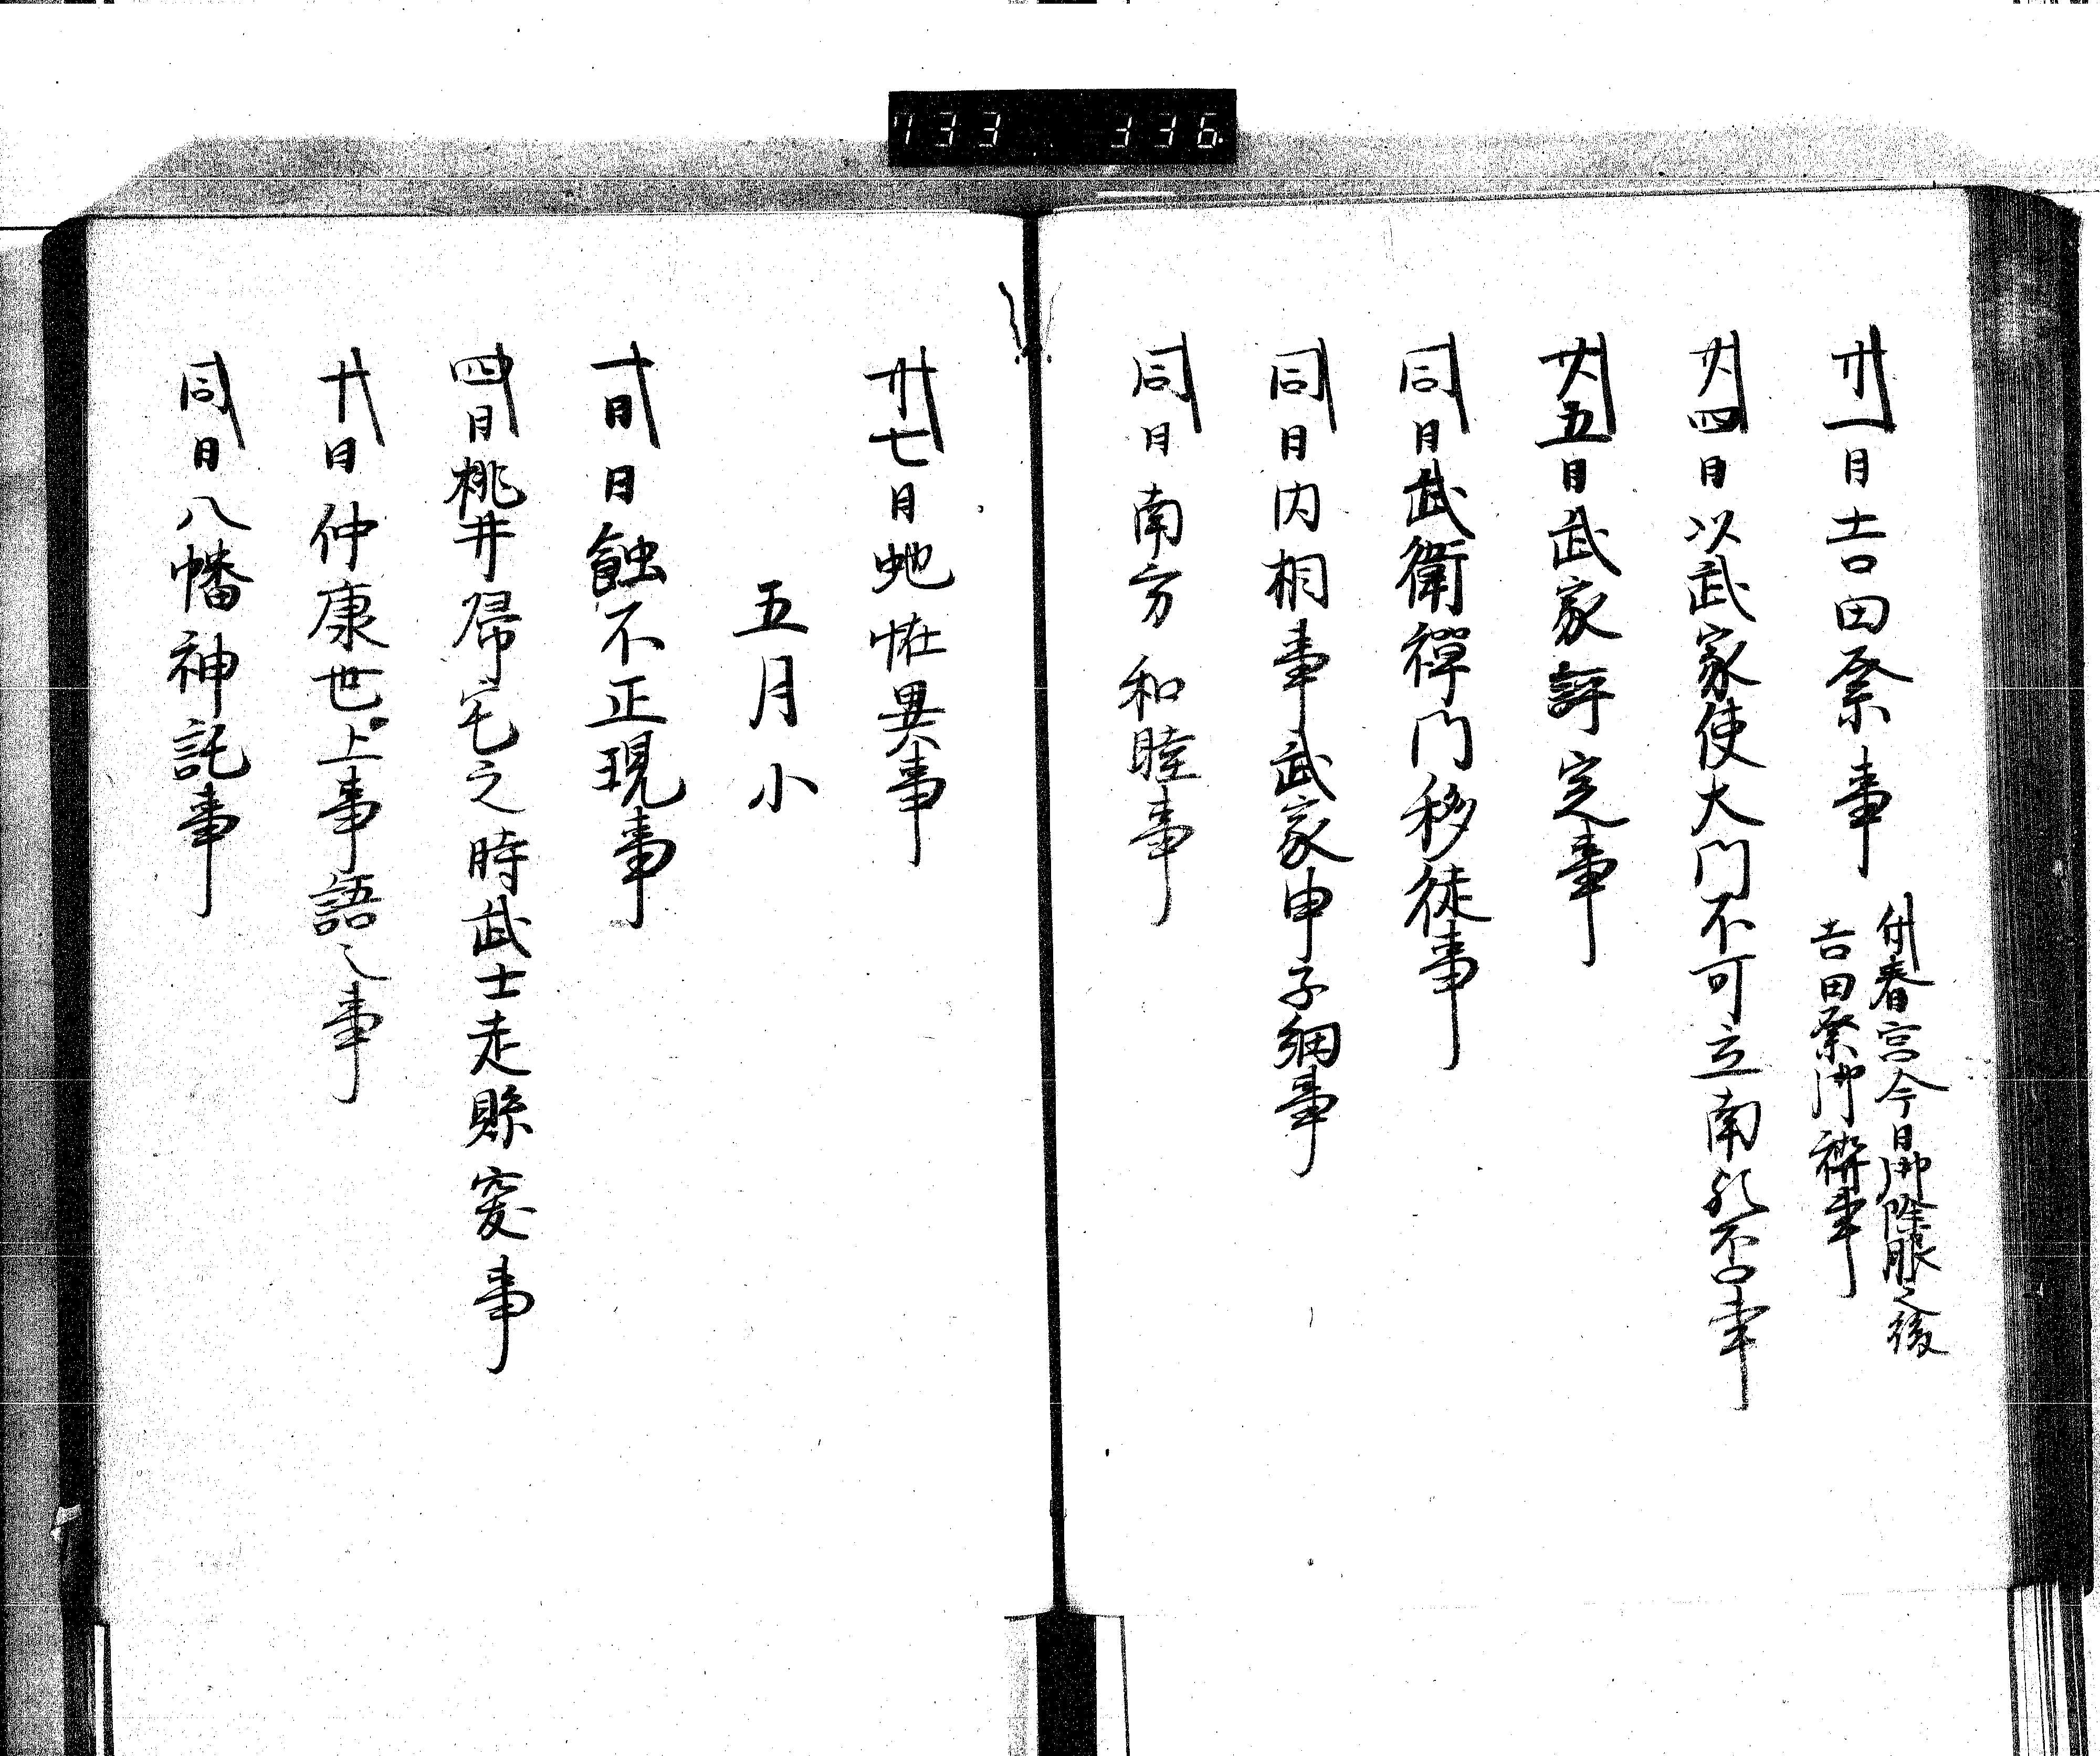 733 336.
廿一日吉田祭事
付春宮今日御除服之後
吉田祭御禊事
廿四日以武家使大門不可立南歟否事
廿五日武家評定事
同日武衛禅門移徒事
同日内相事武家申子細事
同日南方和睦事
廿七日虵恠異事
五月小
一日日蝕不正現事
四日桃井帰宅之時武士走懸事
十日仲康世上事語之事
同日八幡神託事